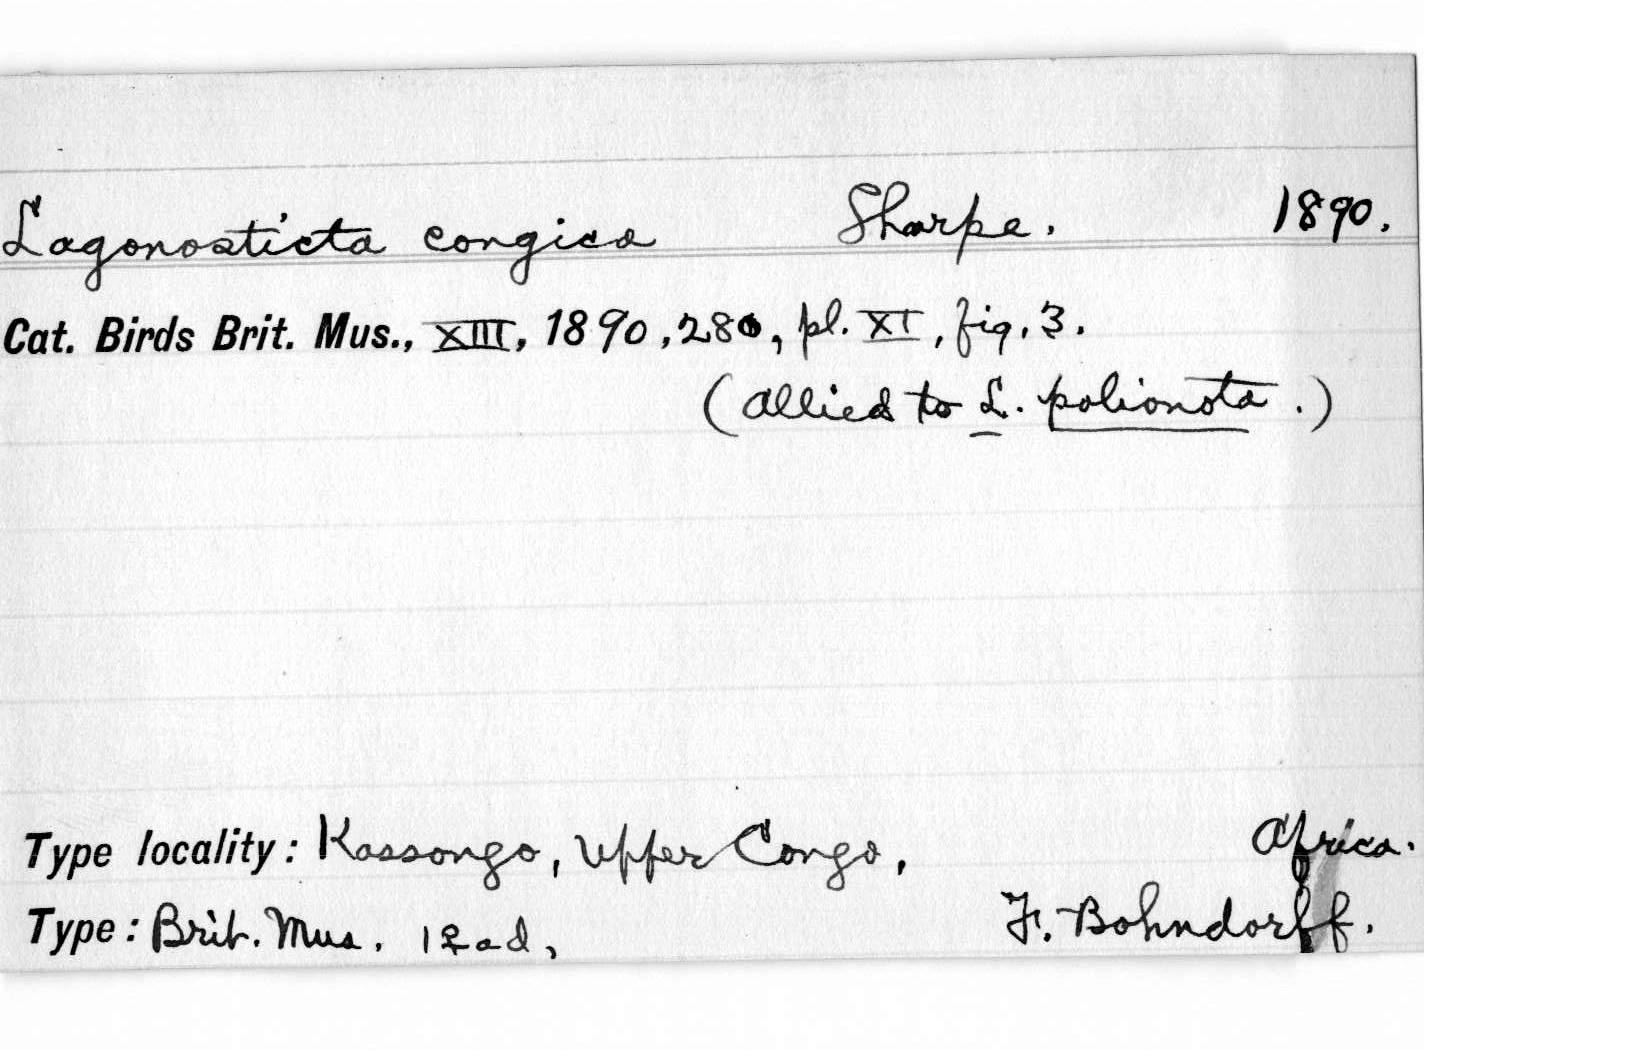 Lagonosticta congica Sharpe. 1890.
Cat. Birds Brit. Mus., XIII, 1890, 280, pl. XI, fig. 3.
(allied to L. polionota.)
Type locality: Kassongo, Upper Congo, Africa.
Type: Brit. Mus. 1♀ad, F. Bohndorff.